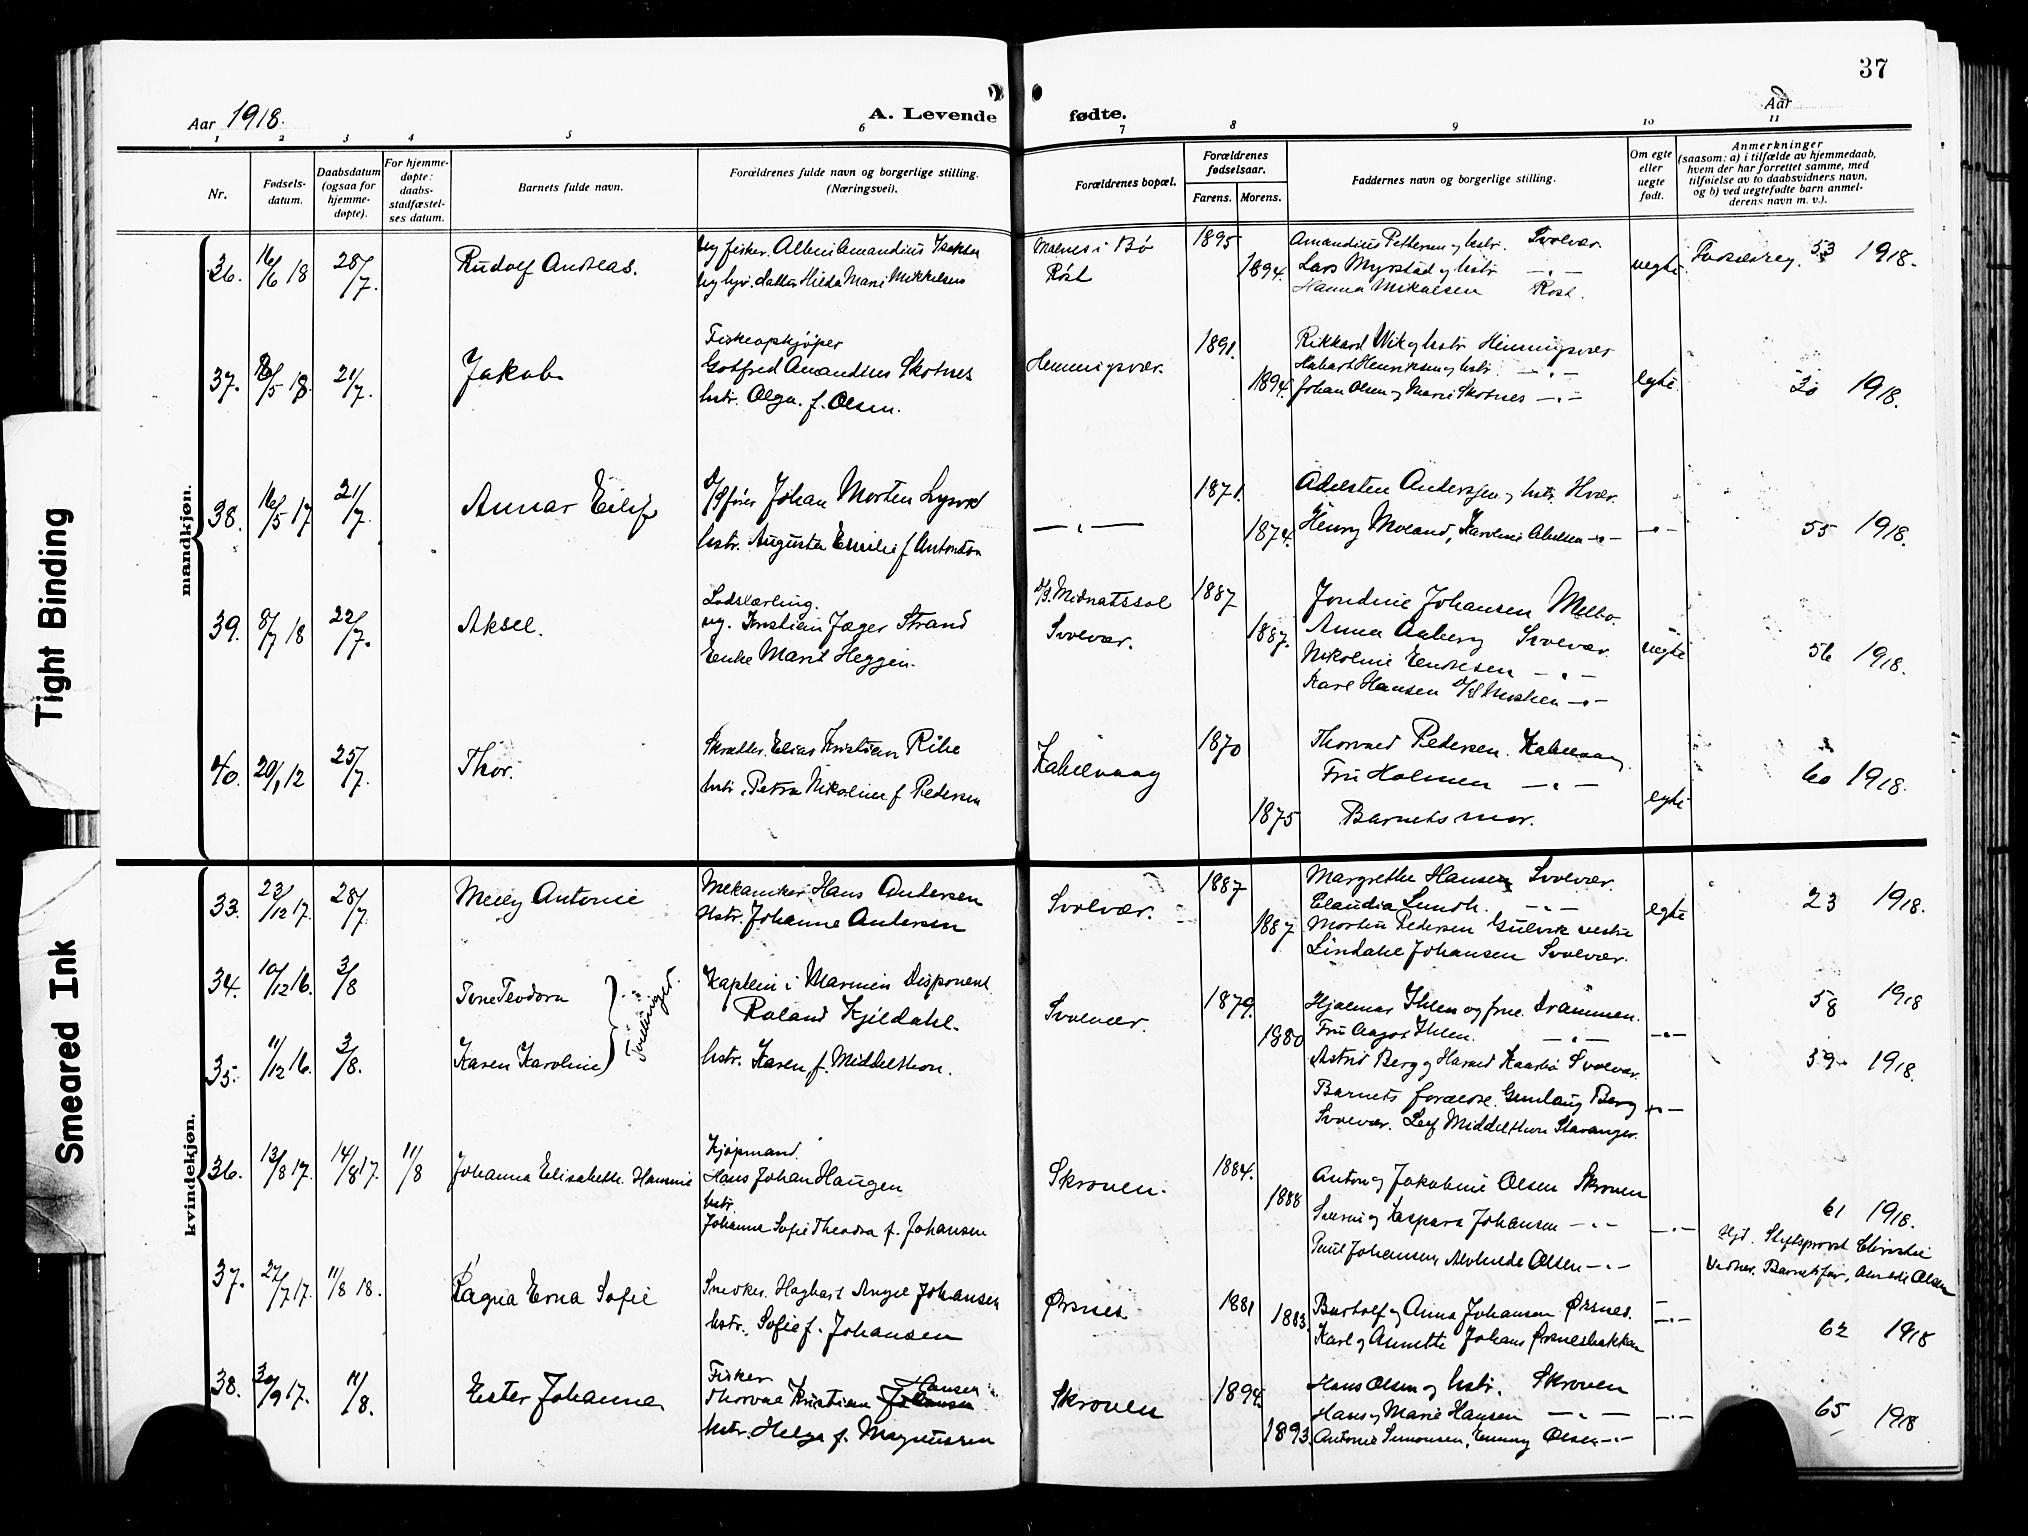 37
Aar 1918.
A. Levende fødte.
Aar
1 2 3 4 5 6 7 8 9 10 11
Nr.
Fødsels-
datum.
Daabsdatum
(ogsaa for
hjemme-
døpte).
For hjemme-
døpte:
daabs-
stadfæstel-
ses datum.
Barnets fulde navn.
Forældrenes fulde navn og borgerlige stilling.
(Næringsvei).
Forældrenes bopæl.
Forældrenes
fødselsaar.
Farens. Morens.
Faddernes navn og borgerlige stilling.
Om egte
eller
uegte
født.
Anmerkninger
(saasom: a) i tilfælde av hjemmedaab,
hvem der har forrettet samme, med
tilføielse av to daabsvidners navn,
og b) ved uegtefødte barn anmel-
derens navn m. v.).
mandkjøn.
36. 16/6 18 28/7. Rudolf Andreas.
Ug fisker Albin Amandius
Ug hjv. datter Hilda Marie Mikkelsen
Malnes i Bø
Røst
1895
1894.
Amandius Pettersen og hstr. Svolvær.
Lars Myrstad og hstr —"—
Hanna Mikalsen Røst.
uegte
53 1918.
37. /5 18. 21/7. Jakob.
Fiskeopkjøper
Gotfred Amandius Skotnes
hstr. Olga. f. Olsen.
Henningsvær.
1891.
1894.
Rikkard Wik og hstr Henningsvær
Henriksen og hstr —"—
Johan Olsen og Marie Skotnes —"—
egte
30 1918.
38. 16/5 17 21/7. Annar Eilif
D/S fører Johan Morten
hstr. Augusta Emilie f Antonsen
—"—
1871.
1874.
Adelsten Andersen og hstr. Hvær.
Henry Moland, Karoline —"—
—"—
55 1918.
39. 8/7 18 22/7. Aksel.
Lodslærling.
ug. Kristian Jæger Strand
Enke Marit Heggen.
D/S. Midnatssol
Svolvær.
1887
1887.
Jondine Johansen Melbo.
Anna Aaberg Svolvær.
Nikoline Endresen —"—
Karl Hansen D/S —"—
uegte
56 1918.
40. 20/1 12 25/7. Thor.
Skrædder. Elias Kristian Ribe
hstr. Petra Nikoline f Pedersen
Kabelvaag
1870
1875
Thorvald Pedersen. Kabelvaag.
Fru Holmen —"—
Barnets mor.
egte
60 1918.
kvindekjøn.
33. 23/12 17. 28/7. Meily Antonie
Mekaniker Hans Andersen
Hstr. Johanne Andersen
Svolvær.
1887
1887
Margrethe Hansen Svolvær.
Claudia Lundh. —"—
Morten Pedersen Gulvik
Lindahl Johansen Svolvær.
egte
23 1918.
34. 10/12 16. 3/8 Tone Teodora
Tvillinger.
Kaptein i Marinen Disponent
Roland Kjeldahl.
Svolvær.
1879.
1880
Hjalmar Ihlen og frue. Drammen.
Fru Aagot Ihlen. —"—
—"—
58 1918
35. 11/12 16. 3/8. Karen Karoline
hstr. Karen f. Middelthon.
Astrid Berg og Harald Kaarbø Svolvær.
Barnets forældre. Gunlaug Berg
Svolvær. Leif Middelthon Stavanger.
—"—
59 1918.
36. 13/8 17. 14/8 17. 11/8 Johanna Elisabeth.
Kjøpmand.
Hans Johan Haugen
hstr.
Johanna Sofie Theodra f. Johansen
Skroven.
1884.
1888
Anton og Jakobine Olsen Skroven
Sverre og Kaspara Johansen —"—
Paul Johansen, Alvhilde Olsen —"—
—"—
61 1918.
Hjd. Stiftsprovst Christie
Vidner. Barnets far, Olsen
37. 27/7 17. 11/8 18. Ragna Erna Sofie
Snedker. Hagbart Angel Johansen
hstr. Sofie f. Johansen
Ørsnes
1881
1883.
Bertolf og Anna Johansen Ørsnes.
Karl og Annette Johans Ørsnesbakken
—"—
62 1918
38. 30/9 17. 11/8. Ester Johanna
Fisker
Thorval Kristian Johansen Hansen
hstr. Helga f. Magnussen
Skroven
1894.
1893.
Hans Olsen og hstr. Skroven
Hans og Marie Hansen —"—
Antonie Simonsen, Emmy Olsen —"—
—"—
65 1918
Tight Binding
Smeared Ink